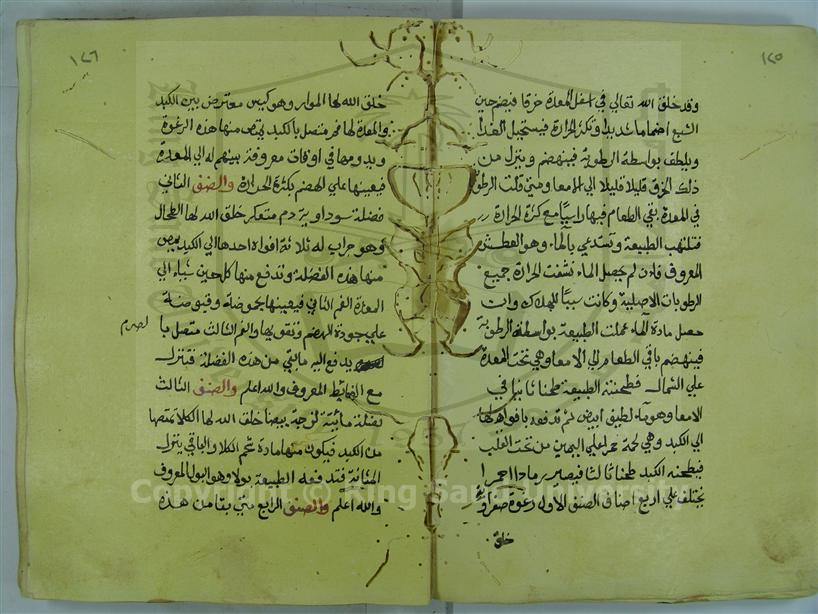 ١٢٥
وقد خلق الله تعالى في اسفل المعدة خرقا فيضم حين
الشبع انضماما شديدا وتكثر الحرارة فيستحيل الغذا
ويلطف بواسطة الرطوبة فينهضم وينزل من
ذلك الخرق قليلا قليلا الي الامعا ومتي قلت الرطوبة
في المعدة بقي الطعام فيها راسيا مع كثرة الحرارة
فتلتهب الطبيعة وتستدعي بالماء وهو العطش
المعروف فان لم يحصل الماء نشفت الحرارة جميع
الرطوبات الاصلية وكانت سببا للهلاك وان
حصل مادة الماء عملت الطبيعة بواسطة الرطوبة
فينهضم باقي الطعام الي الامعا وهي تحت المعدة
علي الشمال فطحنته الطبيعة طحنا ثانيا في
الامعا وهو ماء لطيف ابيض ثم تدفعه بافواهها
الي الكبد وهي لحمة حمرا علي اليمين من تحت القلب
فيطحنه الكبد طحنا ثالثا فيصير رمادا احمرا
يختلف علي اربع اصناف الصنف الاول رغوة صفراوية
خلق
١٢٦
خلق الله لها المرار وهو كيس معترض بين الكبد
والمعدة لها فم متصل بالكبد يمتص منها هذه الرغوة
ويدومها في اوقات معروفة بينهم له الي المعدة
فيعينها علي الهضم بكثرة الحرارة والصنف الثاني
فضلة سوداوية دم متعكر خلق الله لها الطحال
وهو جراب له ثلاثة افواه احدها الي الكبد يمص
منها هذه الفضلة وتدفع منها كل حين شيا الي
المعدة الفم الثاني فيعينها بحموضة وقبوضة
علي جودة الهضم وتقويها والفم الثالث متصل با
لصرم
يدفع اليه ما بقي من هذه الفضلة فينزل
مع الغائط المعروف والله اعلم والصنف الثالث
فضلة مائية لزجة بيضا خلق الله لها الكلا تمتصها
من الكبد فيكون منها مادة شحم الكلا والباقي ينزل
المثانة فتدفعه الطبيعة بولا وهو البول المعروف
والله اعلم والصنف الرابع شي بقا من هذه
Copyright © King Saud University